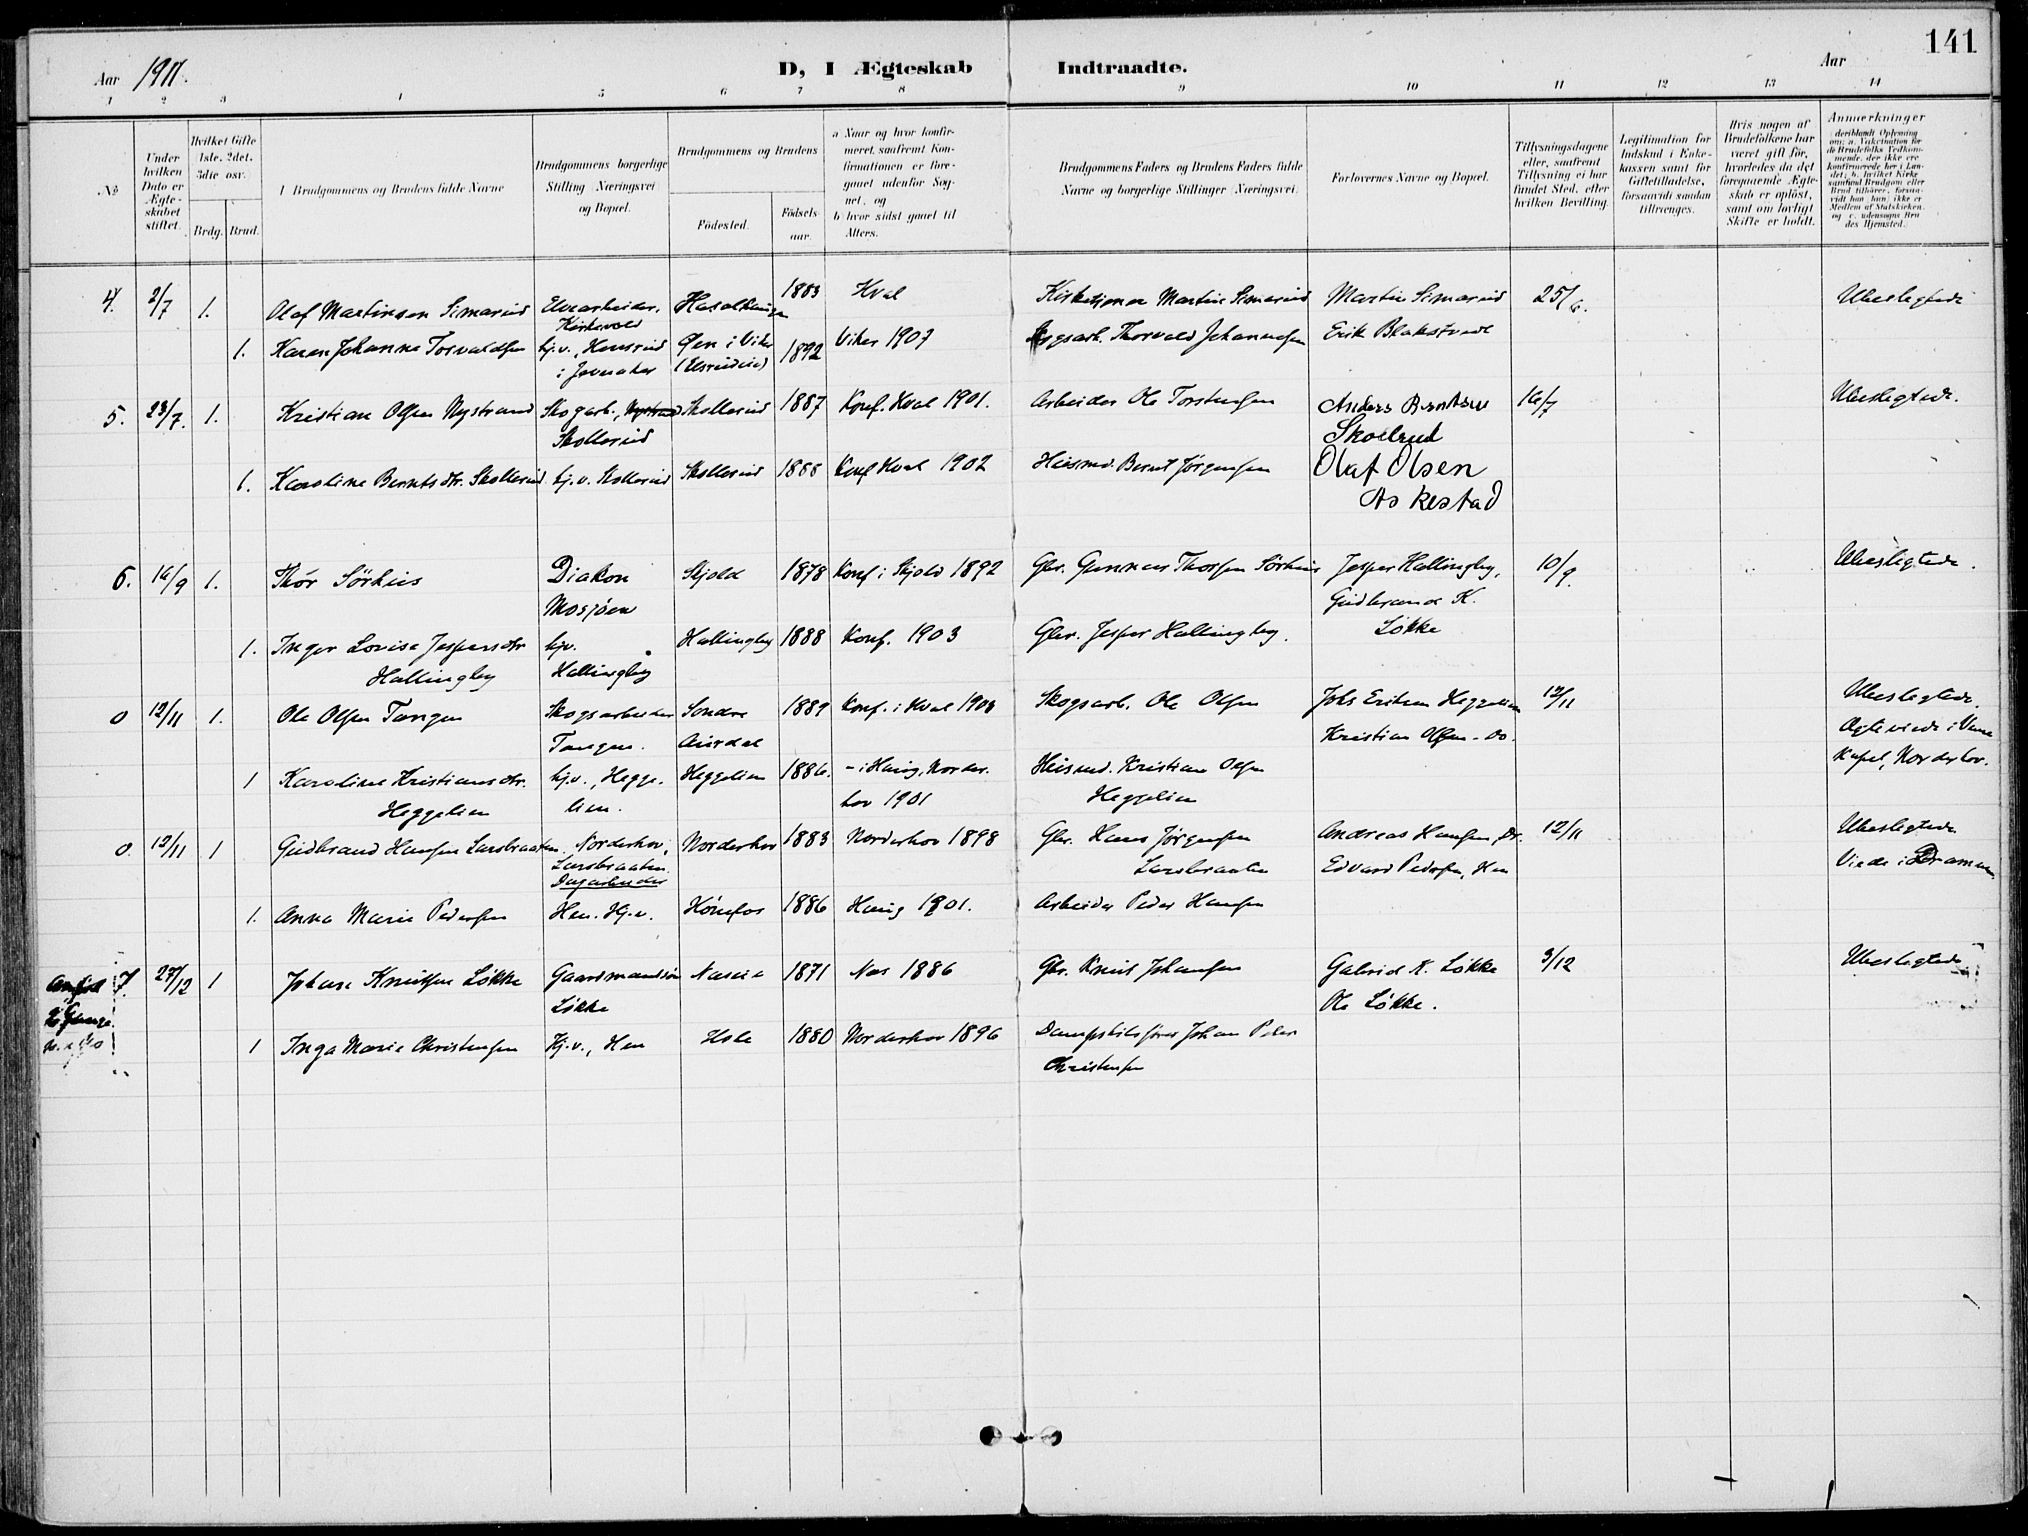 141
Aar 1911.
D, I Ægteskab Indtraadte.
Aar
1 2 3 4 5 6 7 8 9 10 11 12 13 14
No
Under hvilken Dato er Ægteskabet stiftet.
Hvilket Gifte 1ste, 2det, 3die osv.
Brdg. Brud.
Brudgommens og Brudens fulde Navne
Brudgommens borgerlige Stilling Næringsvei og Bopæl.
Brudgommens og Brudens
Födested. Födselsaar.
a Naar og hvor konfirmeret, saafremt Konfirmationen er foregaaet udenfor Sognet, og
b hvor sidst gaaet til Alters.
Brudgommens Faders og Brudens Faders fulde Navne og borgerlige Stillinger (Næringsvei.
Forlovernes Navne og Bopæl.
Tillysningsdagene eller, saafremt Tillysning ei har fundet Sted, efter hvilken Bevilling.
Legitimation for Indskud i Enkekassen samt for Giftetilladelse, forsaavidt saadan tiltrænges.
Hvis nogen af Brudefolkene har været gift før, hvorledes da det foregaaende Ægteskab er opløst, samt om lovligt Skifte er holdt.
Anmærkninger
4. 2/7 1. Olaf Martinsen Simarud Elvearbeider, Kirkevold 1883 Hval Kirketjener Martin Simarud Martin Simarud 25/6. Ubeslegtede
1. Karen Johanne Torvaldsen hj.v., Øen i Viker 1892 Viker 1907 Skogsarb. Thorvald Johannesen Erik
5. 23/7. 1. Kristian Olsen Nystrand Skogarb., Skollerud Skollerud 1887 Konf. Hval 1901. Arbeider Ole Torstensen Anders Berntsen Skollerud 16/7 Ubeslegtede.
1. Karoline Berntsdtr. Skollerud hj.v. Skollerud Skollerud 1888 Konf Hval 1902 Husmd. Bernt Jørgensen Olaf Olsen Askestad
6. 16/9 1. Thór Sörhus Diakon Mosjöen Skjold 1878 Konf i Skjold 1892 Gbr. Gunnar Thorsen Sörhus Jesper Hallingby, Gudbrand K. Løkke 10/9. Ubeslegtede.
1. Inger Lovise Jespersdtr Hallingby hjv. Hallingby Hallingby 1888 Konf. 1903 Gbr. Jesper Hallingby.
0 12/11 1. Ole Olsen Tangen Skogsarbeider Tangen. Søndre Aurdal 1889 Konf. i Hval Skogsarb. Ole Olsen Johs Eriksen Heggelien 12/11 Ubeslegtede.
Kristian Olsen - do. Ægteviede i
Kapel, Norderhov.
1 Karoline Kristiansdtr. Heggelien hj.v., Heggelien. Heggelien 1886. - i Haug, Norderhov 1901 Husmd. Kristian Olsen Heggelien
0. 12/11 1 Gudbrand Hansen Larsbraaten Norderhov, Larsbraaten. Dagarbeider Norderhov 1883 Norderhov 1898 Gbr. Hans Jørgensen Larsbraaten Andreas Hansen, 12/11 Ubeslegtede
Edvard Pedersen, Hen Viede i Drammen
1. Anna Marie Pedersen Hen. Hj.v. Hönefos 1886 Haug 1901. Arbeider Peder Hansen
7. 27/12 1 Johan Knutsen Løkke Gaardmandssøn Løkke 1871 Nes 1886 Gbr. Knut Johansen Gabriel K. Løkke 3/12 Ubeslegtede
Ole Løkke.
1 Inga Marie Christensen Hj.v., Hen Hole 1880 Norderhov 1896 Dampskibsfører Johan Peter Christensen